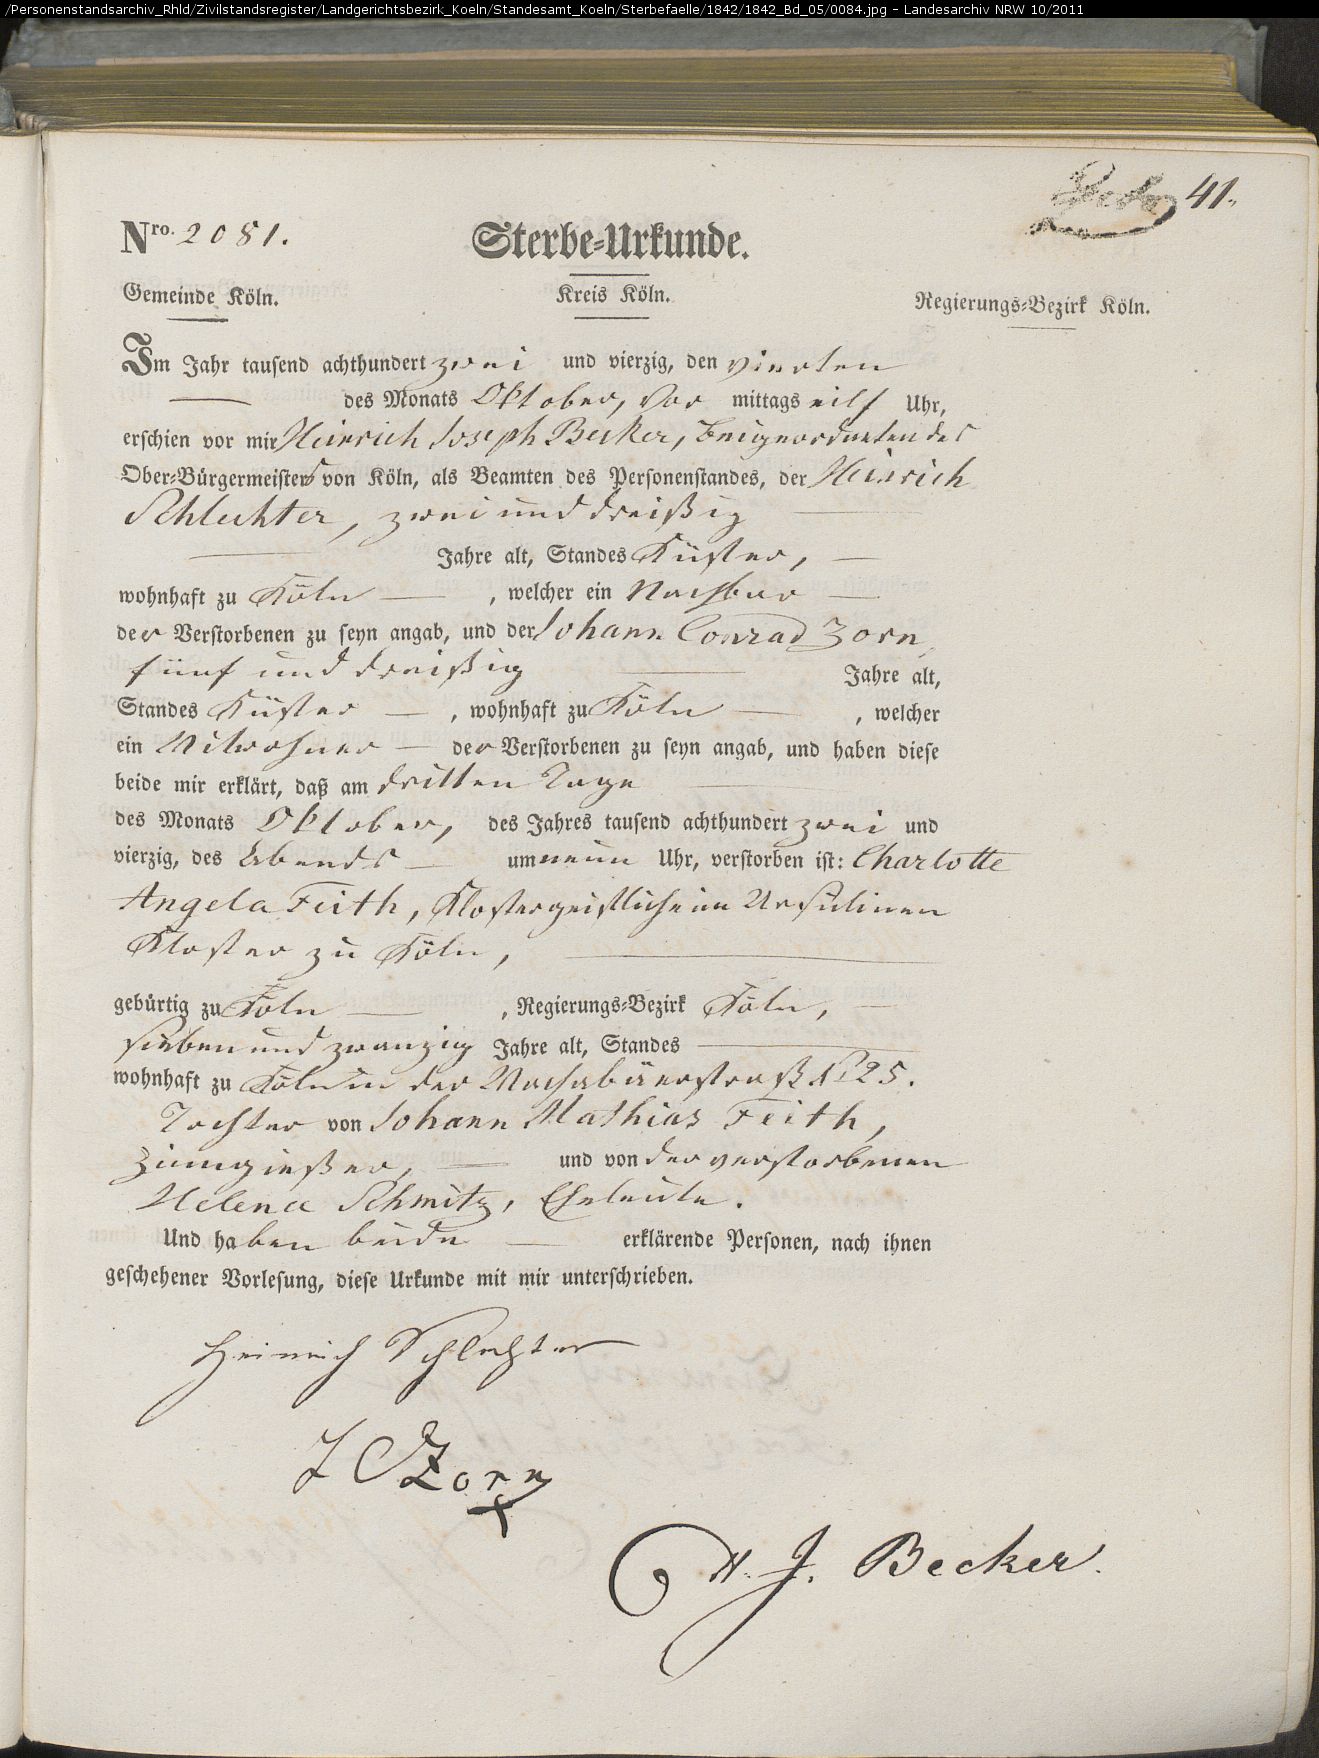 /Personenstandsarchiv_Rhld/Zivilstandsregister/Landgerichtsbezirk_Koeln/Standesamt_Koeln/Sterbefaelle/1842/1842_Bd_05/0084.jpg - Landesarchiv NRW 10/2011
41.
Nro. 2081. Sterbe-Urkunde.
Gemeinde Köln. Kreis Köln. Regierungs-Bezirk Köln.
Im Jahr tausend achthundert zwei und vierzig, den vierten
des Monats Oktober, Vor mittags eilf Uhr,
erschien vor mir Heinrich Joseph Becker, Beigeordneten des
Ober-Bürgermeisters von Köln, als Beamten des Personenstandes, der Heinrich
Schlechter, zwei und dreißig
Jahre alt, Standes Küster,
wohnhaft zu Köln, welcher ein Nachbar
der Verstorbenen zu seyn angab, und der Johann Conrad Zorn,
fünf und dreißig Jahre alt,
Standes Küster, wohnhaft zu Köln, welcher
ein Mitwohner der Verstorbenen zu seyn angab, und haben diese
beide mir erklärt, daß am dritten Tage
des Monats Oktober, des Jahres tausend achthundert zwei und
vierzig, des Abends um neun Uhr, verstorben ist: Charlotte
Angela Feith, Klostergeistliche im Ursulinen
Kloster zu Köln,
gebürtig zu Köln, Regierungs-Bezirk Köln,
sieben und zwanzig Jahre alt, Standes
wohnhaft zu Köln in der Machabäerstraß No 25.
Tochter von Johann Mathias Feith,
Zinngießer, und von der verstorbenen
Helena Schmitz, Eheleute.
Und haben beide erklärende Personen, nach ihnen
geschehener Vorlesung, diese Urkunde mit mir unterschrieben.
Heinrich Schlechter
J C Zorn
H. J. Becker.